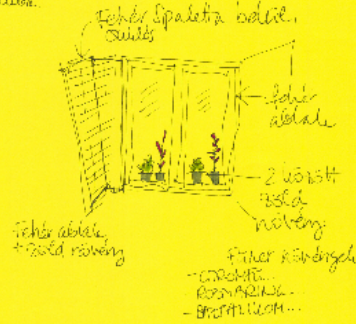 Fehér Spaletta belül,
fehér
ablak
2 között
zöld
növény
Fehér ablak
+ zöld növény
Fűszer növények
- CITROMFŰ...
ROZMARING...
- BAZSALIKOM...